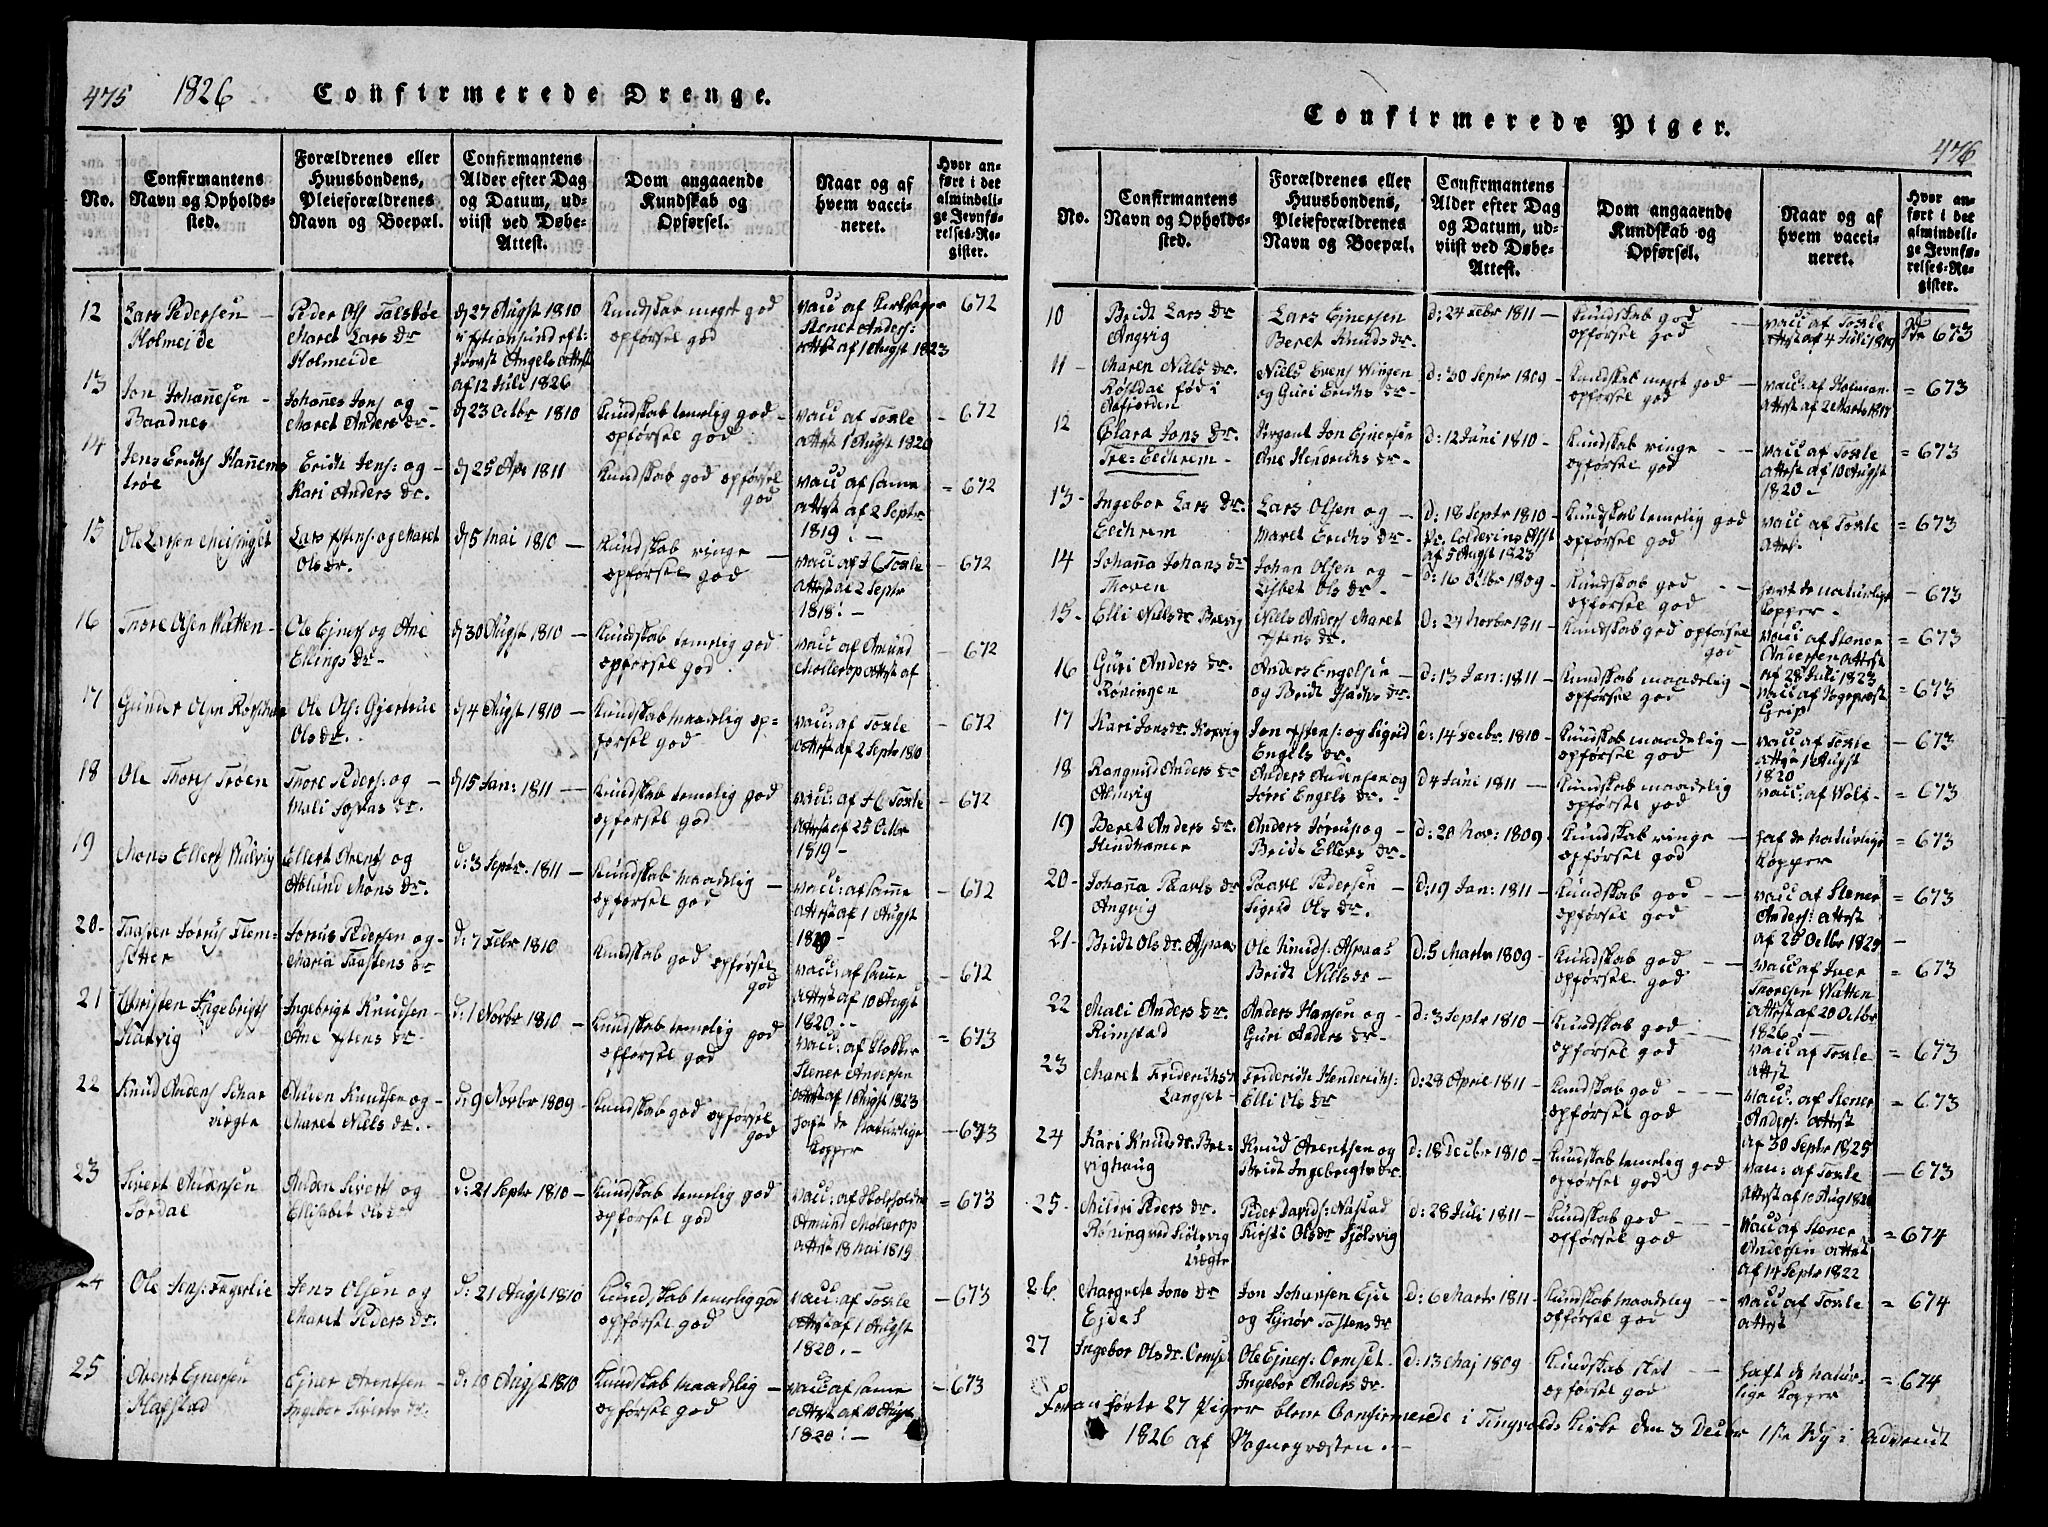 475 1826 Confirmerede Drenge.
No.
Confirmantens
Navn og Opholds-
sted.
Forældrenes eller
Huusbondens,
Pleieforældrenes
Navn og Boepæl.
Confirmantens
Alder efter Dag
og Datum, ud-
viist ved Døbe-
Attest.
Dom angaaende
Kundskab og
Opførsel.
Naar og af
hvem vacci-
neret.
Hvor an-
ført i det
almindeli-
ge Jevnfø-
relses-Re-
gister.
12
Lars Pedersen
Holmeide
Peder Ols
Maret Lars dr
Holmeide
27 Augst 1810
Provst Angels Attest
af 12 Juli 1826
Kundskab meget god
opførsel god
Stener Anders:
Attst af 1 Augst 1823
672
13
Jon Johañesen
Baadnes
Johañes Jons og
Maret Anders dr
23 Octbr 1810
Kundskab temelig god
opførsel god
vacc af Toxle
Attst 1 Augst 1820
672
14
Jens Erichs
Erich Jens: og
Kari Anders dr.
25 Apr 1811
Kundskab god opførsel
god
vacc af same
Attst af 2 Septr
1819
= 672
15
Ole Larsen Meisinget
Ols dr.
5 Mai 1810
Kundskab ringe
opførsel god
vacc af H C Toxle
Attst af 2 Septr
1818
672
16
Tore Olsen Watten
Ole Ejners og Ane
Ellings dr
30 Augst 1810
Kundskab temelig god
opførsel god
vacc af Amund
Mollerop Attst af
672
17
Gunder Olsen
Ole Ols: Gjertrue
Ols dr.
4 Augst 1810
Kundskab maadelig op=
førsel god
vacc: af Toxle
Attst af 2 Septr
672
18
Ole Thores Trøen
Thore Peders: og
15 Jan: 1811
Kundskab temelig god
opførsel god
vacc: af H C Toxle
Attst af 25 Octbr
1819
672
19
Mons Ellers
Ellert Arents og
Mons dr.
d: 3 Septr. 1811
Kundskab maadelig
opførsel god
vacc: af same
Attst af 1 Augst
672
20
Pedersen og
Maria Taastens dr
d: 7 Febr 1810
Kundskab god opførsel
god
vacc: af same
Attst af 10 Augst
1820
672
21
Christen Ingebrigts
Ingebrigt Knudsen
Ane Istens dr
d: 1 Novbr 1810
Kundskab temelig god
opførsel god
vacc: af Klokker
Stener Andersen
Attst af 1 Augst 1823
= 673
22
Knud Andens
Anden Knudsen og
Maret Niels dr.
d: 9 Novbr 1809
Kundskab god opførsel
god
haft de Naturlige
Kopper
673
23
Sivert Andensen
Anden Siverts og
Ellisabet Ols dr
d: 21 Septr 1810
Kundskab temelig god
opførsel god
Amund Mollerop
Attst 18 Mai 1819
= 673
24
Ole Jens: Fugerlie
Jens Olsen og
Maret Peders dr.
d: 21 Augst 1810
Kundskab temelig god
opførsel god
vacc: af Toxle
Attst af 1 Augst
1820.
673
25
Arent Ejnersen
Hafstad
Ejner Arentsen
Ingebor Siverts dr.
Augst 1810
Kundskab maadelig
opførsel god
vacc af same
Attst af 10 Augst
1820
673
Confirmerede Piger.
476
No.
Confirmantens
Navn og Opholds-
sted.
Forældrenes eller
Huusbondens,
Pleieforældrenes
Navn og Boepæl.
Confirmantens
Alder efter Dag
og Datum, ud-
viist ved Døbe-
Attest.
Dom angaaende
Kundskab og
Opførsel.
Naar og af
hvem vacci-
neret.
Hvor an-
ført i det
almindeli-
ge Jevnfø-
relses-Re-
gister.
10
Bridt Lars dr
Angvig
Lars Ejnersen
Beret Knuds dr.
d: 24 Febr 1811
Kundskab god
opførsel god
vacc af Toxle
Attst af 4 Juli 1819
673
11
Maren Niels dr.
Røsdal fød i
Niels Evens Wingen
og Guri Erichs dr.
d: 30 Septr 1809
Kundskab meget god
opførsel god
vacc: af Holman
= 673
12
Clara Jons dr.
Eechrem
Sergant Jon Ejnersen
Ane Hendrichs dr
d: 12 Juni 1810
Kundskab ringe
opførsel god
vacc af Toxle
Attst af 10 Augst
1820
= 673
13
Ingebor Lars dr.
Eechrem
Lars Olsen og
Maret Erichs dr.
d: 18 Septr 1810
af 5 Augst 1823
Kundskab temelig god
opførsel god
vacc af Toxle
Attst.
= 673
14
Johaña Johans dr
Thoven
Johan Olsen og
Lisbet Ols dr
d: 16 Octbr 1809
Kundskab god
opførsel god
havt de naturlige
Kopper
673
15
Elli Niels dr Brevig
Niels Anders Maret
Istens dr.
d: 24 Novbr 1811
Kundskab god opførsel
god
vacc: af Stener
Andersen Attst
af 28 Juli 1823
= 673
16
Guri Anders dr.
Roningen
Anders Engelsen
og Bridt Isachs dr.
d: 13 Jan: 1811
Kundskab maadelig
opførsel god
vacc af Sogeprest
Grip
= 673
17
Kari Jons dr. Korsvig
Jon Istens: og Sigrid
Engels dr.
d: 14 Decbr. 1810
Kundskab maadelig
opførsel god
vacc: af Toxle
1 Augst
1820
673
18
Rangnild Anders dr
Almvig
Anders Andersen og
Engels dr.
d 4 Juni 1811
Kundskab maadelig
opførsel god
vacc: af Wolf
= 673
19
Beret Anders dr.
Hindhamer
Anders Jørup og
Bridt Ellers dr
d: 20 Nov: 1809
Kundskab ringe
opførsel god
haf de Naturlige
Kopper
= 673
20
Johaña Paavls dr
Angvig
Paavl Pedersen
Sigrid Ols dr.
d: 19 Jan: 1811
Kundskab god
opførsel god
vacc af Stener
Anders: Attst
af 25 Octbr 1825
= 673
21
Bridt Ols dr. Aspaas
Ole Knuds: Aspaas
Bridt Niels dr
d: 5 Marts 1809
Kundskab god
opførsel god
vacc af Iver
Toresen Watten
Attst af 20 Octbr
1826
= 673
22
Mali Anders dr.
Rimstad
Anders Hansen og
Guri Anders dr
d: 3 Septr 1810
Kundskab god
opførsel god
vacc af Toxle
Attst
= 673
23
Maret Friderichs dr
Langset
Friderich Henderichs:
Elli Ols dr
d: 28 April 1811
Kundskab god
opførsel god
vacc: af Stener
Anders: Attst
af 30 Septr 1825
= 673
24
Kari Knuds dr. Bre-
vighaug
Knud Arentsen og
Bridt Ingebrigts dr.
d: 18 Decbr 1810
Kundskab temelig god
opførsel god
vacc: af Toxle
Attst af 10 Aug 1820
673
25
Mildri Peders dr.
Røning ved Sjølsvig
vægte
Peder Davids: Nastad
Kirsti Ols dr Sjølsvig
d: 28 Juli 1811
Kundskab god
opførsel god
vacc af Stener
Andersen Attst
af 14 Septr 1822
= 674
26
Margrete Jons dr
Jon Johansen
og Synør Tostens dr
d: 6 Marts 1811
Kundskab maadelig
opførsel god
vacc af Toxle
Attst
= 674
27
Ingebor Ols dr. Ormset
Ole Ejners: Ormset
Ingebor Anders dr.
d: 13 Maj 1809
Kundskab slet
opførsel god
haft de natur-
lige Kopper
= 674
Foran førte 27 Piger bleve Confirmerede i Tingvolds Kirke den 3 Decbr 1ste Sdg i Advent
1826 af Sognepræsten